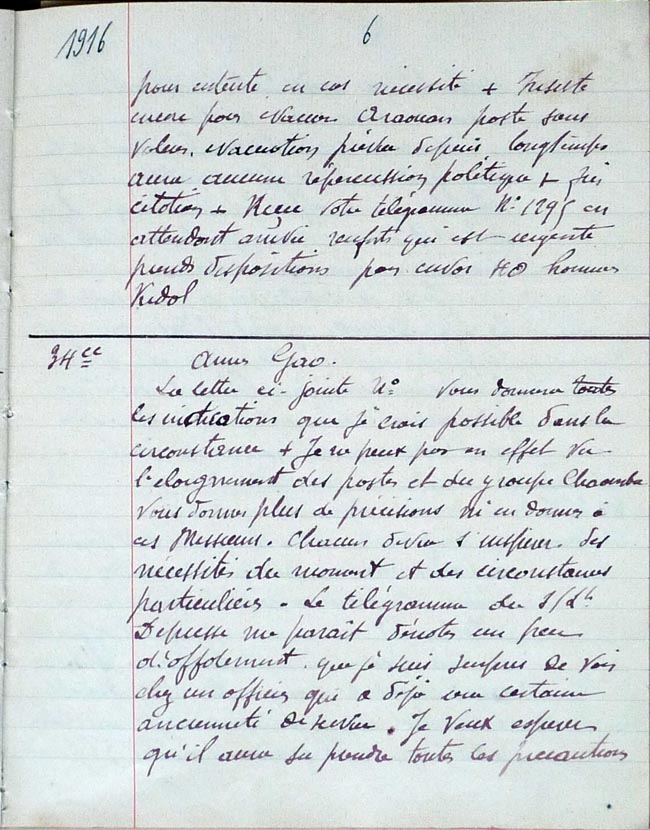 1916
6
pour entente en cas nécessité + Insiste
encore pour évacuer Araouan poste sans
valeur. évacuation prévue depuis longtemps
aura aucune répercussion politique + fin
citation + Reçu votre télégramme N° 1295 en
attendant arrivée renforts qui est urgente
prends dispositions pour envoi 40 hommes
Kidal
34 cc
Annex Gao.
La lettre ci-jointe N° vous donnera toutes
les indications que je crois possible dans la
circonstance + Je ne peux pas en effet vu
l'éloignement des postes et du groupe Chaamba
vous donner plus de précisions ni en donner à
ces Messieurs. Chacun devra s'inspirer des
nécessités du moment et des circonstances
particulières. Le télégramme du S/Lt
me paraît dénoter un peu
d'affolement que je suis surpris de voir
chez un officier qui a déjà une certaine
ancienneté de service. Je veux espérer
qu'il aura su prendre toutes les précautions